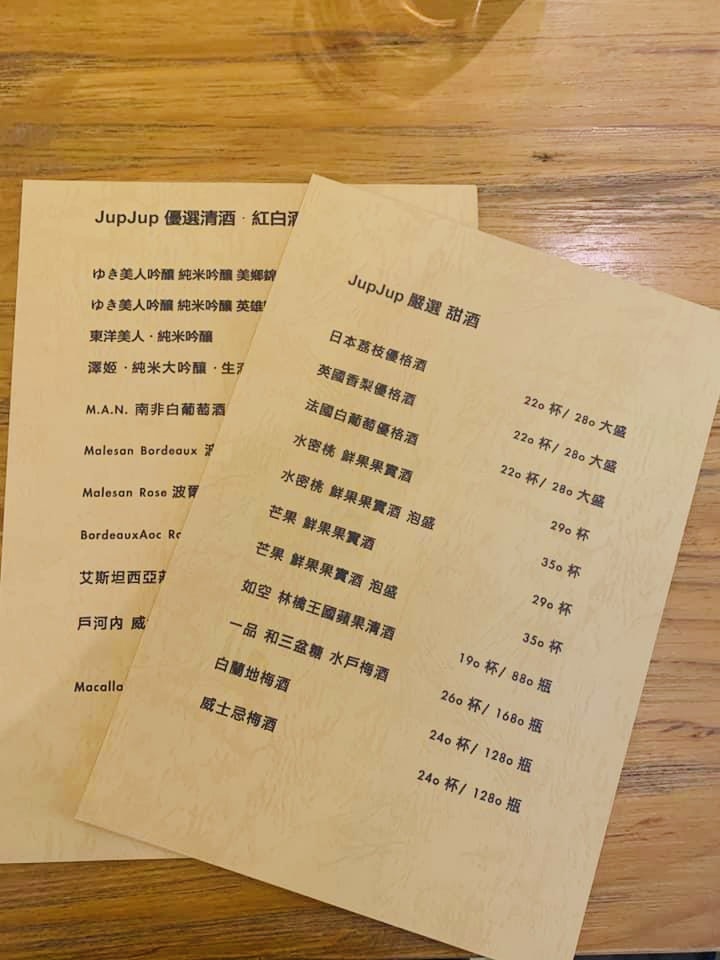 JupJup 優選清酒 · 紅白酒
ゆき美人吟釀 純米吟釀 美鄉錦
ゆき美人吟釀 純米吟釀 英雄
東洋美人 · 純米吟釀
澤姬 · 純米大吟釀 · 生
M.A.N. 南非白葡萄酒
Malesan Bordeaux 波
Malesan Rose 波爾
BordeauxAoc Ro
艾斯坦西亞
戶河內 威
Macalla
JupJup 嚴選 甜酒
日本荔枝優格酒 220 杯/ 280 大盛
英國香梨優格酒 220 杯/ 280 大盛
法國白葡萄優格酒 220 杯/ 280 大盛
水密桃 鮮果果實酒 290 杯
水密桃 鮮果果實酒 泡盛 350 杯
芒果 鮮果果實酒 290 杯
芒果 鮮果果實酒 泡盛 350 杯
如空 林檎王國蘋果清酒 190 杯/ 880 瓶
一品 和三盆糖 水戶梅酒 260 杯/ 1680 瓶
白蘭地梅酒 240 杯/ 1280 瓶
威士忌梅酒 240 杯/ 1280 瓶